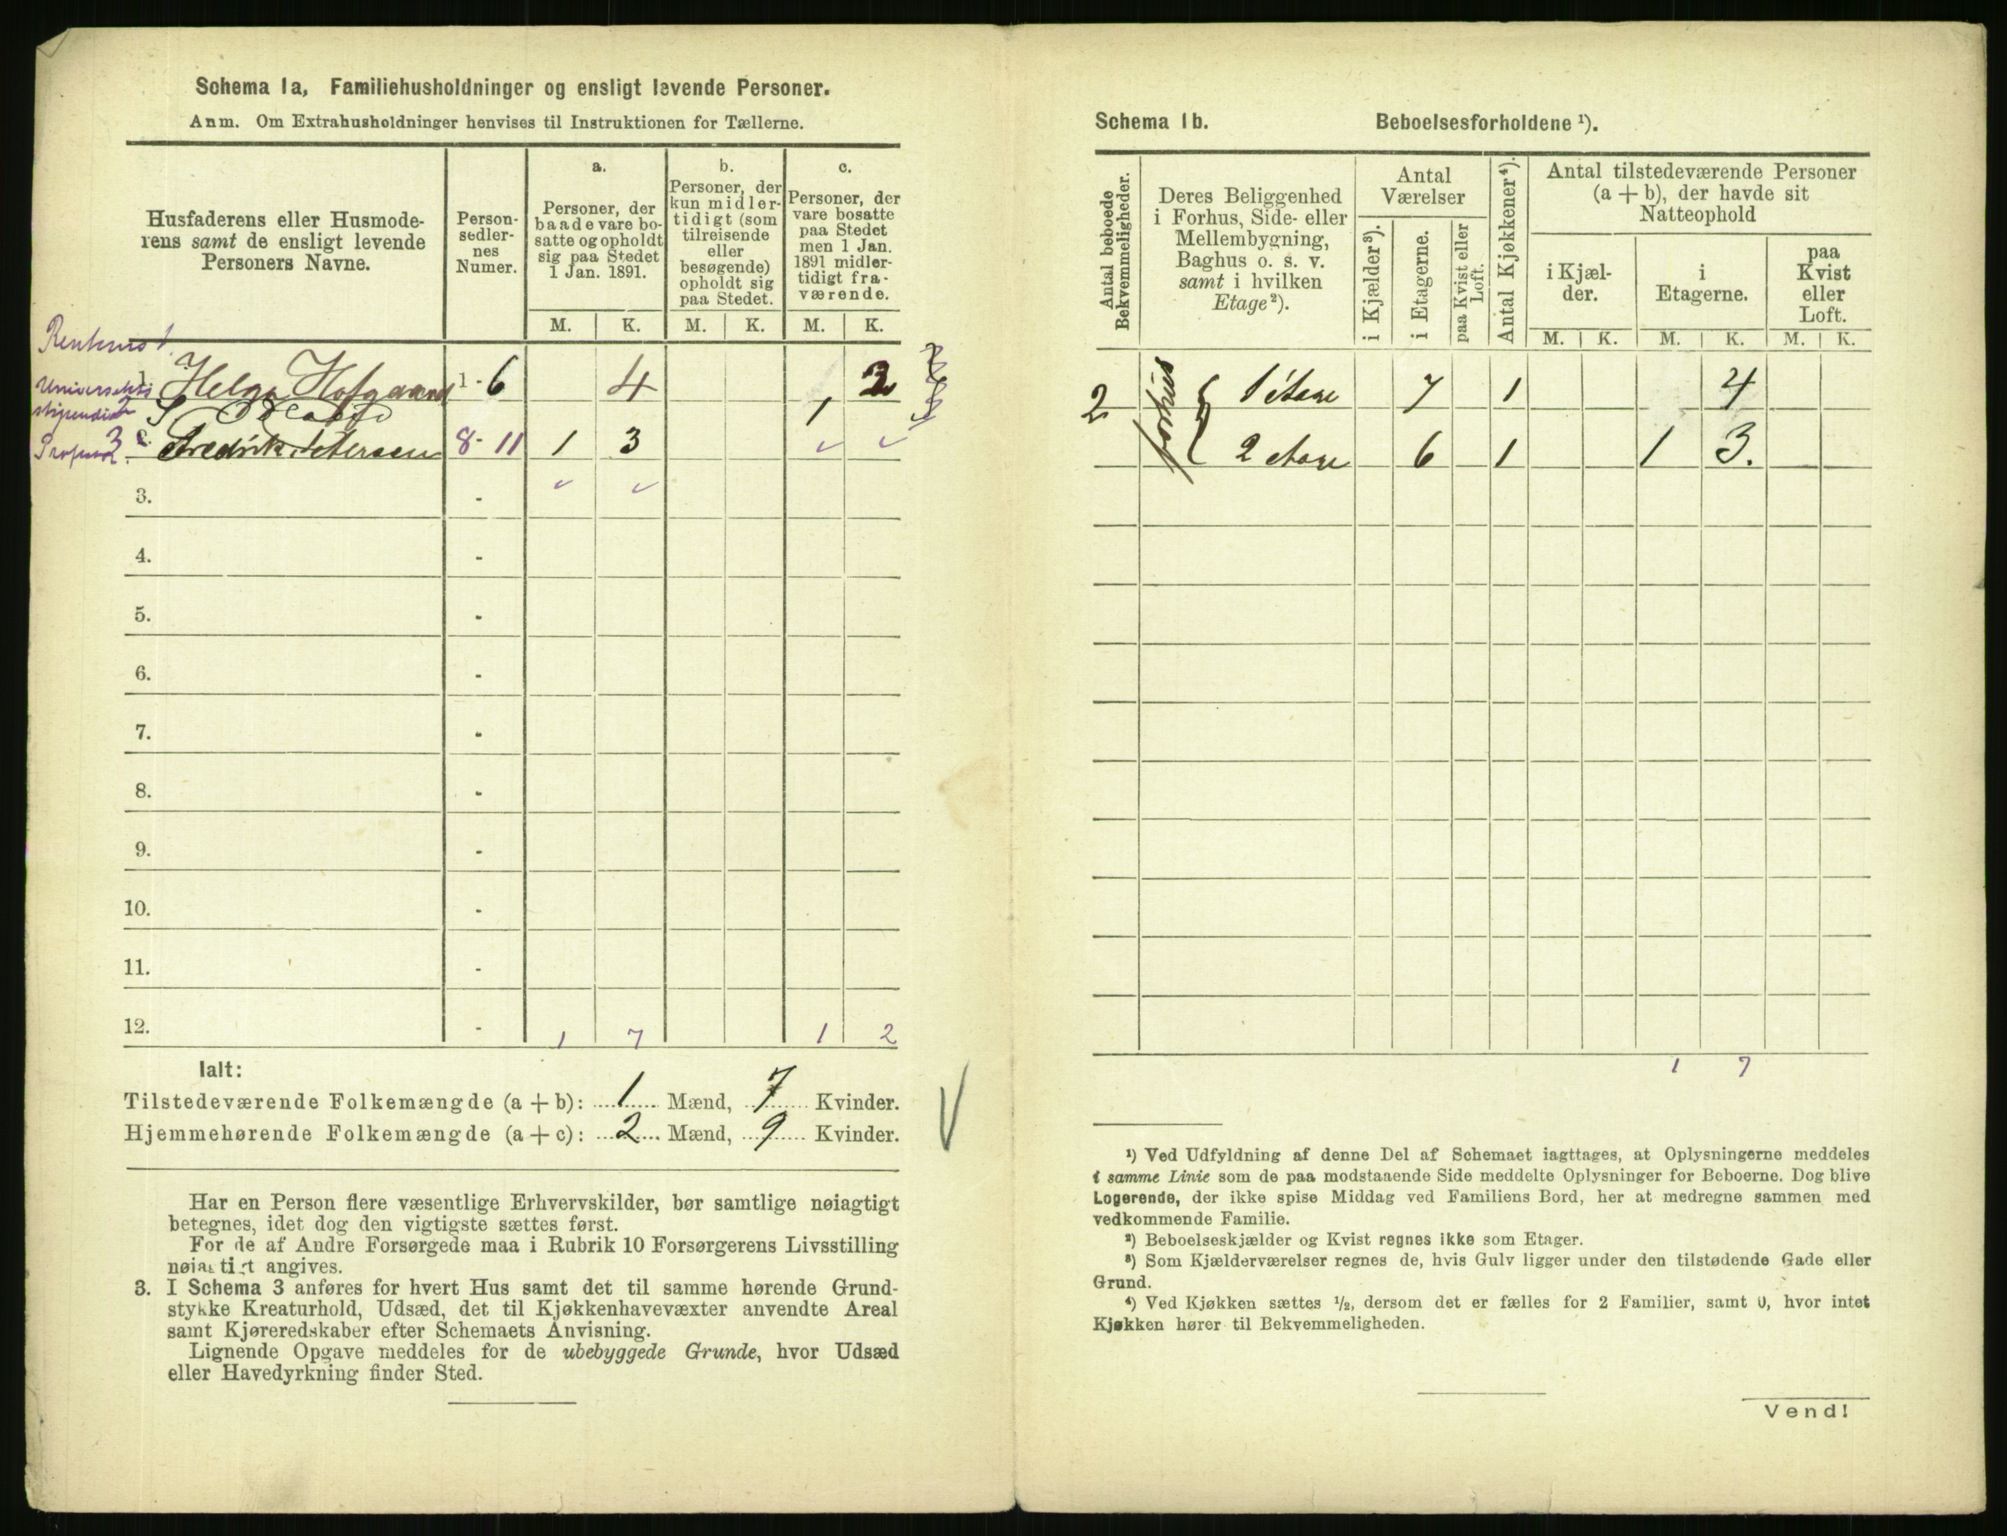 Schema 1a, Familiehusholdninger og ensligt levende Personer.
Anm. Om Extrahusholdninger henvises til Instruktionen for Tællerne.
Husfaderens eller Husmode-
rens samt de ensligt levende
Personers Navne.
Person-
sedler-
nes
Numer.
a.
Personer, der
baade vare bo-
satte og opholdt
sig paa Stedet
1 Jan. 1891.
M. K.
b.
Personer, der
kun midler-
tidigt (som
tilreisende
eller
besøgende)
opholdt sig
paa Stedet.
M. K.
c.
Personer, der
vare bosatte
paa Stedet
men 1 Jan.
1891 midler-
tidigt fra-
værende.
M. K.
1. Helga Hofgaard 1 - 6 4 2
Universitets
stipendiat 2 1
Professor 3 Fredrik Petersen 8 - 11 1 3
3. -
4. -
5. -
6. -
7. -
8. -
9. -
10. -
11. -
12. - 1 7 1 2
Ialt:
Tilstedeværende Folkemængde (a + b): 1 Mænd, 7 Kvinder.
Hjemmehørende Folkemængde (a + c): 2 Mænd, 9 Kvinder.
Har en Person flere væsentlige Erhvervskilder, bør samtlige nøiagtigt
betegnes, idet dog den vigtigste sættes først.
For de af Andre Forsørgede maa i Rubrik 10 Forsørgerens Livsstilling
nøiagtigt angives.
3. I Schema 3 anføres for hvert Hus samt det til samme hørende Grund-
stykke Kreaturhold, Udsæd, det til Kjøkkenhavevæxter anvendte Areal
samt Kjøreredskaber efter Schemaets Anvisning.
Lignende Opgave meddeles for de ubebyggede Grunde, hvor Udsæd
eller Havedyrkning finder Sted.
Schema 1b. Beboelsesforholdene ¹).
Antal beboede
Bekvemmeligheder.
Deres Beliggenhed
i Forhus, Side- eller
Mellembygning,
Baghus o. s. v.
samt i hvilken
Etage²).
Antal
Værelser
i Kjælder³).
i Etagerne.
paa Kvist eller
Loft.
Antal Kjøkkener⁴).
Antal tilstedeværende Personer
(a + b), der havde sit
Natteophold
i Kjæl-
der.
i
Etagerne.
paa
Kvist
eller
Loft.
M. K. M. K. M. K.
2 forhus 1 étage 7 1 4
2 etage 6 1 1 3.
1 7
¹) Ved Udfyldning af denne Del af Schemaet iagttages, at Oplysningerne meddeles
i samme Linie som de paa modstaaende Side meddelte Oplysninger for Beboerne. Dog blive
Logerende, der ikke spise Middag ved Familiens Bord, her at medregne sammen med
vedkommende Familie.
²) Beboelseskjælder og Kvist regnes ikke som Etager.
³) Som Kjælderværelser regnes de, hvis Gulv ligger under den tilstødende Gade eller
Grund.
⁴) Ved Kjøkken sættes ½, dersom det er fælles for 2 Familier, samt 0, hvor intet
Kjøkken hører til Bekvemmeligheden.
Vend!